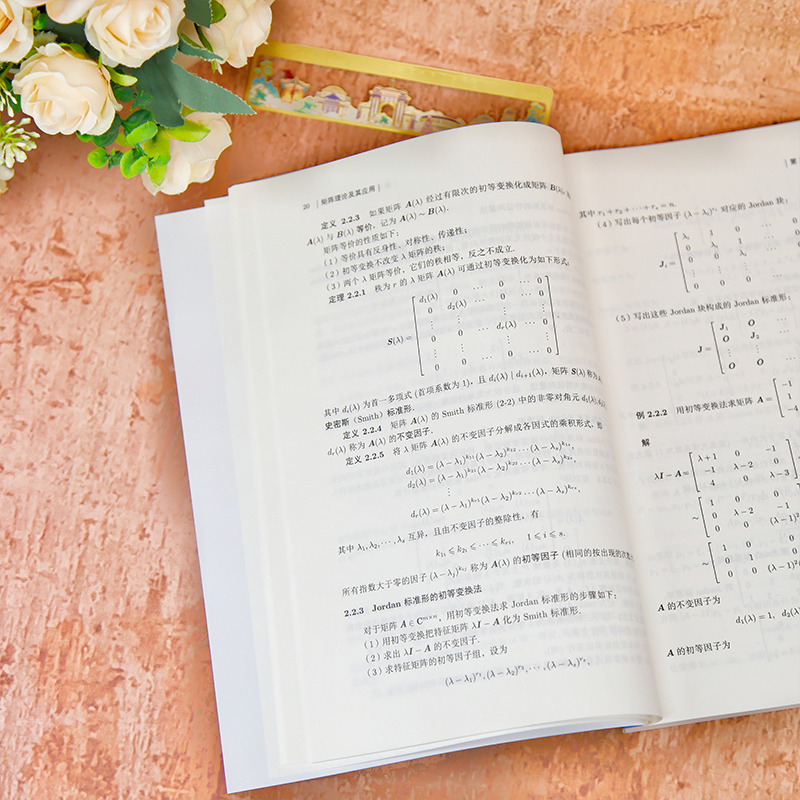 20 | 矩阵理论及其应用
定义 2.2.3 如果矩阵 A(λ) 经过有限次的初等变换化成矩阵 B(λ),
A(λ) 与 B(λ) 等价, 记为 A(λ) ~ B(λ).
矩阵等价的性质如下:
(1) 等价具有反身性、对称性、传递性;
(2) 初等变换不改变 λ 矩阵的秩;
(3) 两个 λ 矩阵等价, 它们的秩相等, 反之不成立.
定理 2.2.1 秩为 r 的 λ 矩阵 A(λ) 可通过初等变换化为如下形式:
S(λ) =
d₁(λ) 0 ⋯ 0 ⋯ 0
0 d₂(λ) ⋯ 0 ⋯ 0
⋮ ⋮ ⋮ ⋮
0 0 ⋯ dᵣ(λ) ⋯ 0
⋮ ⋮ ⋮ ⋮
0 0 ⋯ 0 ⋯ 0
其中 dᵢ(λ) 为首一多项式 (首项系数为 1), 且 dᵢ(λ) | dᵢ₊₁(λ), 矩阵 S(λ) 称为
史密斯 (Smith) 标准形.
定义 2.2.4 矩阵 A(λ) 的 Smith 标准形 (2-2) 中的非零对角元 d₁(λ), d₂
dᵣ(λ) 称为 A(λ) 的不变因子.
定义 2.2.5 将 λ 矩阵 A(λ) 的不变因子分解成各因式的乘积形式, 即
d₁(λ) = (λ − λ₁)^{k₁₁}(λ − λ₂)^{k₁₂} ⋯ (λ − λₛ)^{k₁ₛ},
d₂(λ) = (λ − λ₁)^{k₂₁}(λ − λ₂)^{k₂₂} ⋯ (λ − λₛ)^{k₂ₛ},
⋮
dᵣ(λ) = (λ − λ₁)^{kᵣ₁}(λ − λ₂)^{kᵣ₂} ⋯ (λ − λₛ)^{kᵣₛ},
其中 λ₁, λ₂, ⋯, λₛ 互异, 且由不变因子的整除性, 有
k₁ᵢ ⩽ k₂ᵢ ⩽ ⋯ ⩽ kᵣᵢ, 1 ⩽ i ⩽ s.
所有指数大于零的因子 (λ − λⱼ)^{kᵢⱼ} 称为 A(λ) 的初等因子 (相同的按出现的次数
2.2.3 Jordan 标准形的初等变换法
对于矩阵 A ∈ Cⁿˣⁿ, 用初等变换法求 Jordan 标准形的步骤如下:
(1) 用初等变换把特征矩阵 λI − A 化为 Smith 标准形.
(2) 求出 λI − A 的不变因子.
(3) 求特征矩阵的初等因子组, 设为
(λ − λ₁)^{r₁}, (λ − λ₂)^{r₂}, ⋯, (λ − λₛ)^{rₛ},
第
其中 r₁ + r₂ + ⋯ + rₛ = n.
(4) 写出每个初等因子 (λ − λᵢ)^{rᵢ} 对应的 Jordan 块:
Jᵢ =
λᵢ 1 0 ⋯
0 λᵢ 1 ⋯
⋮ ⋮ ⋮
0 0 0 ⋯
0 0 0 ⋯
(5) 写出这些 Jordan 块构成的 Jordan 标准形:
J =
J₁ O ⋯
O J₂ ⋯
⋮ ⋮
O O ⋯
例 2.2.2 用初等变换法求矩阵 A =
−1
1
−4
解
λI − A =
λ + 1 0 −1
−1 λ − 2 0
4 0 λ − 3
~
1 0 0
0 λ − 2 −1
0 0 (λ − 1)²
~
1 0 0
0 1 0
0 0 (λ − 1)²
A 的不变因子为
d₁(λ) = 1, d₂(λ)
A 的初等因子为